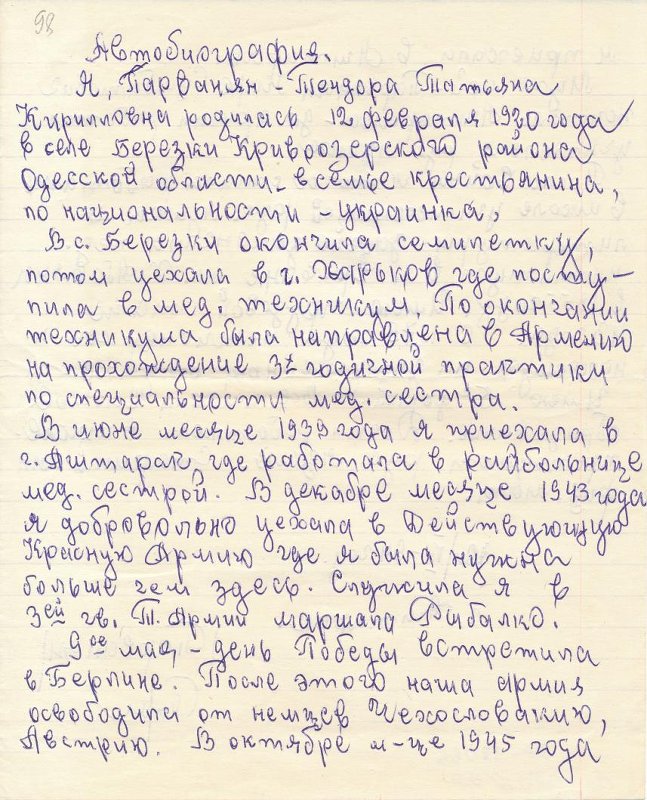 98
Автобиография.
Я, Парванян-Тендора Татьяна
Кирилловна родилась 12 февраля 1920 года
в селе Березки Кривоозерского района
Одесской области в семье крестьянина,
по национальности - украинка,
В с. Березки окончила семилетку,
потом уехала в г. Харьков где посту-
пила в мед. техникум. По окончании
техникума была направлена в Армению
на прохождение 3х годичной практики
по специальности мед. сестра.
В июне месяце 1939 года я приехала в
г. Аштарак где работала в райбольнице
мед. сестрой. В декабре месяце 1943 года
я добровольно уехала в Действующую
Красную Армию где я была нужна
больше чем здесь. Служила я в
3ей гв. Т. Армии маршала Рыбалко.
9ое мая - день Победы встретила
в Берлине. После этого наша армия
освободила от немцев Чехословакию,
Австрию. В октябре м-це 1945 года